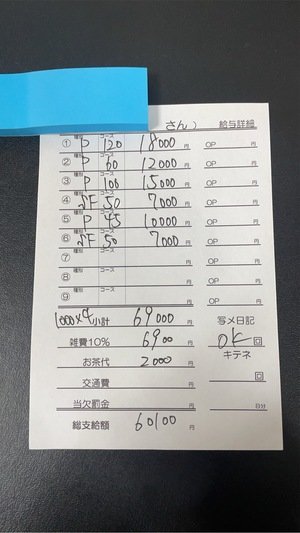 さん) 給与詳細
① 種別 P コース 120 18000 円 OP 円
② 種別 P コース 60 12000 円 OP 円
③ 種別 P コース 100 15000 円 OP 円
④ 種別 コース 50 7000 円 OP 円
⑤ 種別 P コース 45 10000 円 OP 円
⑥ 種別 コース 50 7000 円 OP 円
⑦ 種別 コース 円 OP 円
⑧ 種別 コース 円 OP 円
⑨ 種別 コース 円 OP 円
1000×4 小計 69000 円 写メ日記
雑費10% 6900 円 OK 回
お茶代 2000 円 キテネ
交通費 円 回
当欠罰金 円 日分
総支給額 60100 円